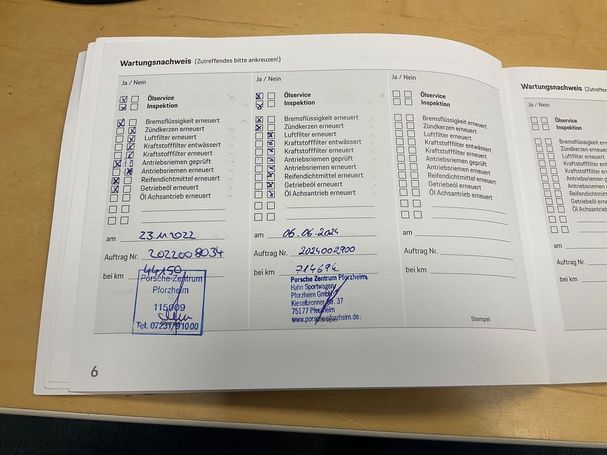 Wartungsnachweis (Zutreffendes bitte ankreuzen!)
Ja / Nein
Ölservice
Inspektion
Bremsflüssigkeit erneuert
Zündkerzen erneuert
Luftfilter erneuert
Kraftstofffilter entwässert
Kraftstofffilter erneuert
Antriebsriemen geprüft
Antriebsriemen erneuert
Reifendichtmittel erneuert
Getriebeöl erneuert
Öl Achsantrieb erneuert
am 23.11.2022
Auftrag Nr. 2022008034
bei km 44150
Porsche-Zentrum
Pforzheim
115009
Tel. 07231/91000
6
Ja / Nein
Ölservice
Inspektion
Bremsflüssigkeit erneuert
Zündkerzen erneuert
Luftfilter erneuert
Kraftstofffilter entwässert
Kraftstofffilter erneuert
Antriebsriemen geprüft
Antriebsriemen erneuert
Reifendichtmittel erneuert
Getriebeöl erneuert
Öl Achsantrieb erneuert
am 06.06.2024
Auftrag Nr. 2024002900
bei km
Porsche Zentrum Pforzheim
Hahn Sportwagen
Pforzheim GmbH
Kieselbronner Str. 37
75177 Pforzheim
www.porsche-pforzheim.de
Ja / Nein
Ölservice
Inspektion
Bremsflüssigkeit erneuert
Zündkerzen erneuert
Luftfilter erneuert
Kraftstofffilter entwässert
Kraftstofffilter erneuert
Antriebsriemen geprüft
Antriebsriemen erneuert
Reifendichtmittel erneuert
Getriebeöl erneuert
Öl Achsantrieb erneuert
am
Auftrag Nr.
bei km
Stempel
Wartungsnachweis (Zutreffendes
Ja / Nein
Ölservice
Inspektion
Bremsflüssigkeit
Zündkerzen erneuert
Luftfilter erneuert
Kraftstofffilter
Kraftstofffilter
Antriebsriemen
Antriebsriemen
Reifendichtmittel
Getriebeöl erneuert
Öl Achsantrieb
am
Auftrag Nr.
bei km